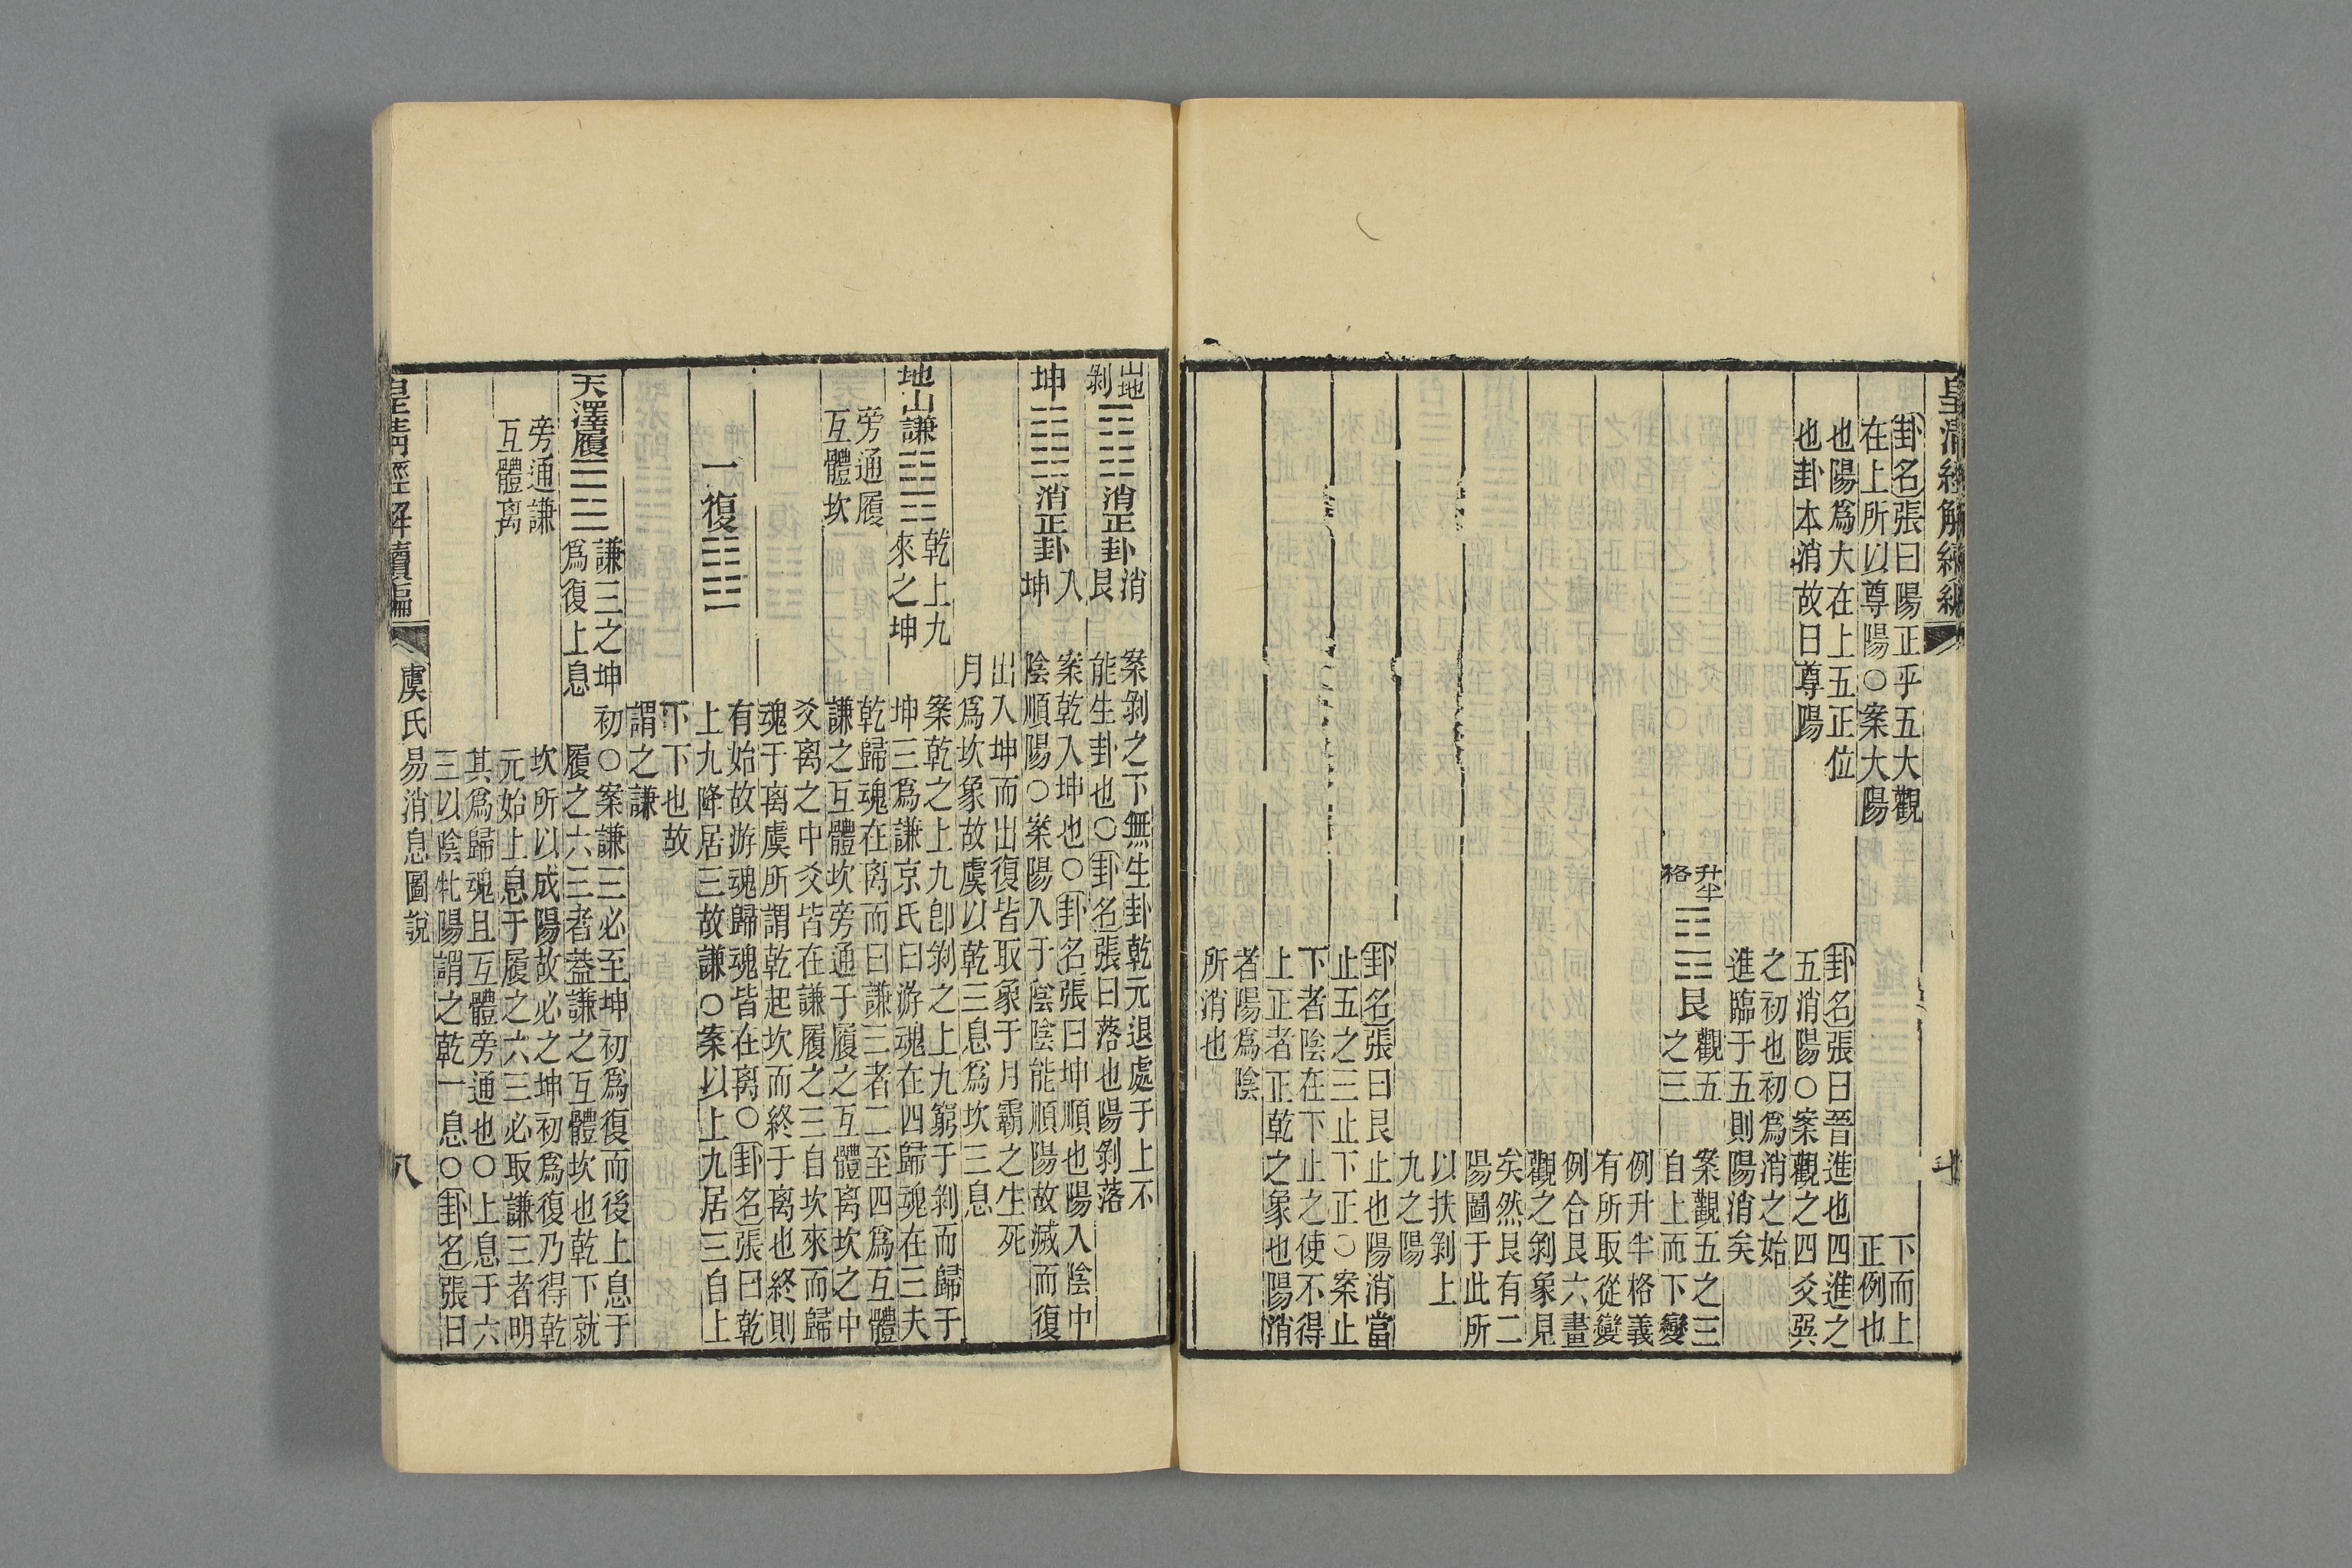 皇清經解續編
卦名張曰陽正乎五大觀
在上所以尊陽○案大陽
也陽爲大在上五正位
也卦本消故曰尊陽
下而上
正例也
卦名張曰晉進也四進之
五消陽○案觀之四爻巽
之初也初爲消之始
進臨于五則陽消矣
升半
格
䷳艮
觀五
之三
案觀五之三
自上而下變
例升半格義
有所取從變
例合艮六畫
觀之剝象見
矣然艮有二
陽圖于此所
以扶剝上
九之陽
卦名張曰艮止也陽消當
止五之三止下正○案止
下者陰在下止之使不得
上正者正乾之象也陽消
者陽爲陰
所消也
山地
剝
䷖消正卦
消
艮
案剝之下無生卦乾元退處于上不
能生卦也○卦名張曰落也陽剝落
坤䷁消正卦
入
坤
案乾入坤也○卦名張曰坤順也陽入陰中
陰順陽○案陽入于陰陰能順陽故滅而復
出入坤而出復皆取象于月霸之生死
月爲坎象故虞以乾三息爲坎三息
地山謙䷎
乾上九
來之坤
案乾之上九卽剝之上九窮于剝而歸于
坤三爲謙京氏曰游魂在四歸魂在三夫
旁通履
互體坎
乾歸魂在离而曰謙三者二至四爲互體
謙之互體坎旁通于履之互體离坎之中
爻离之中爻皆在謙履之三自坎來而歸
魂于离虞所謂乾起坎而終于离也終則
一復䷗
有始故游魂歸魂皆在离○卦名張曰乾
上九降居三故謙○案以上九居三自上
下下也故
謂之謙
天澤履䷉
謙三之坤初○案謙三必至坤初爲復而後上息于
爲復上息履之六三者葢謙之互體坎也乾下就
旁通謙
互體离
坎所以成陽故必之坤初爲復乃得乾
元始上息于履之六三必取謙三者明
其爲歸魂且互體旁通也○上息于六
三以陰牝陽謂之乾一息○卦名張曰
皇清經解續編
虞氏易消息圖說
八